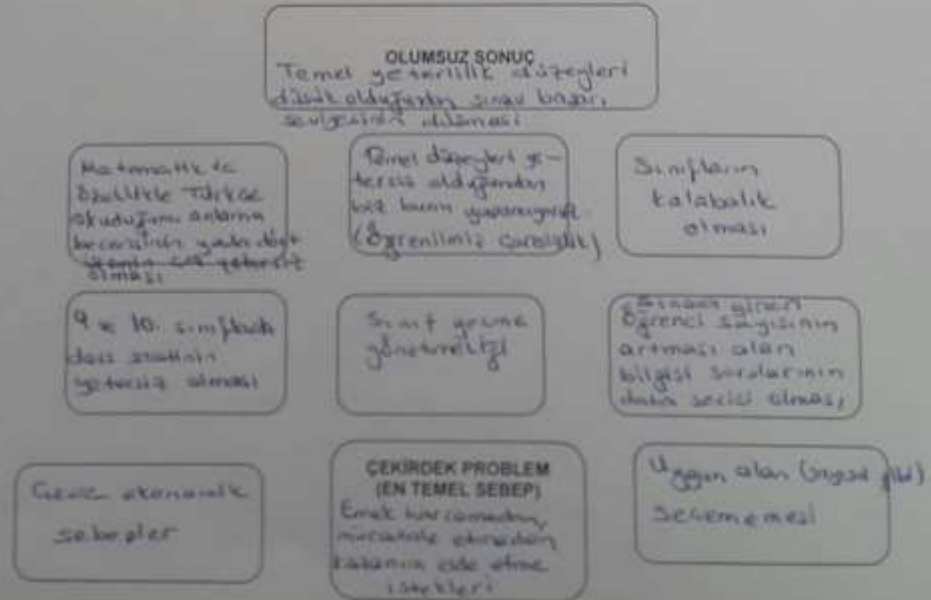 OLUMSUZ SONUÇ
Temel yeterlilik düzeyleri
düşük olduğundan sınav başarı
seviyesinin düşmesi
Matematik ve
özellikle Türkçe
okuduğunu anlama
becerisinin
yetersiz
olması
Temel düzeyleri ye-
tersiz olduğundan
(Öğrenilmiş Çaresizlik)
Sınıfların
kalabalık
olması
9 ve 10. sınıflarda
ders saatinin
yetersiz olması
Sınıf geçme
yönetmeliği
Sınava giren
öğrenci sayısının
artması alan
bilgisi sorularının
daha seçici olması
Genel ekonomik
sebepler
ÇEKİRDEK PROBLEM
(EN TEMEL SEBEP)
Emek harcamadan,
mücadele etmeden
kazanım elde etme
istekleri
Uygun alan
seçememesi